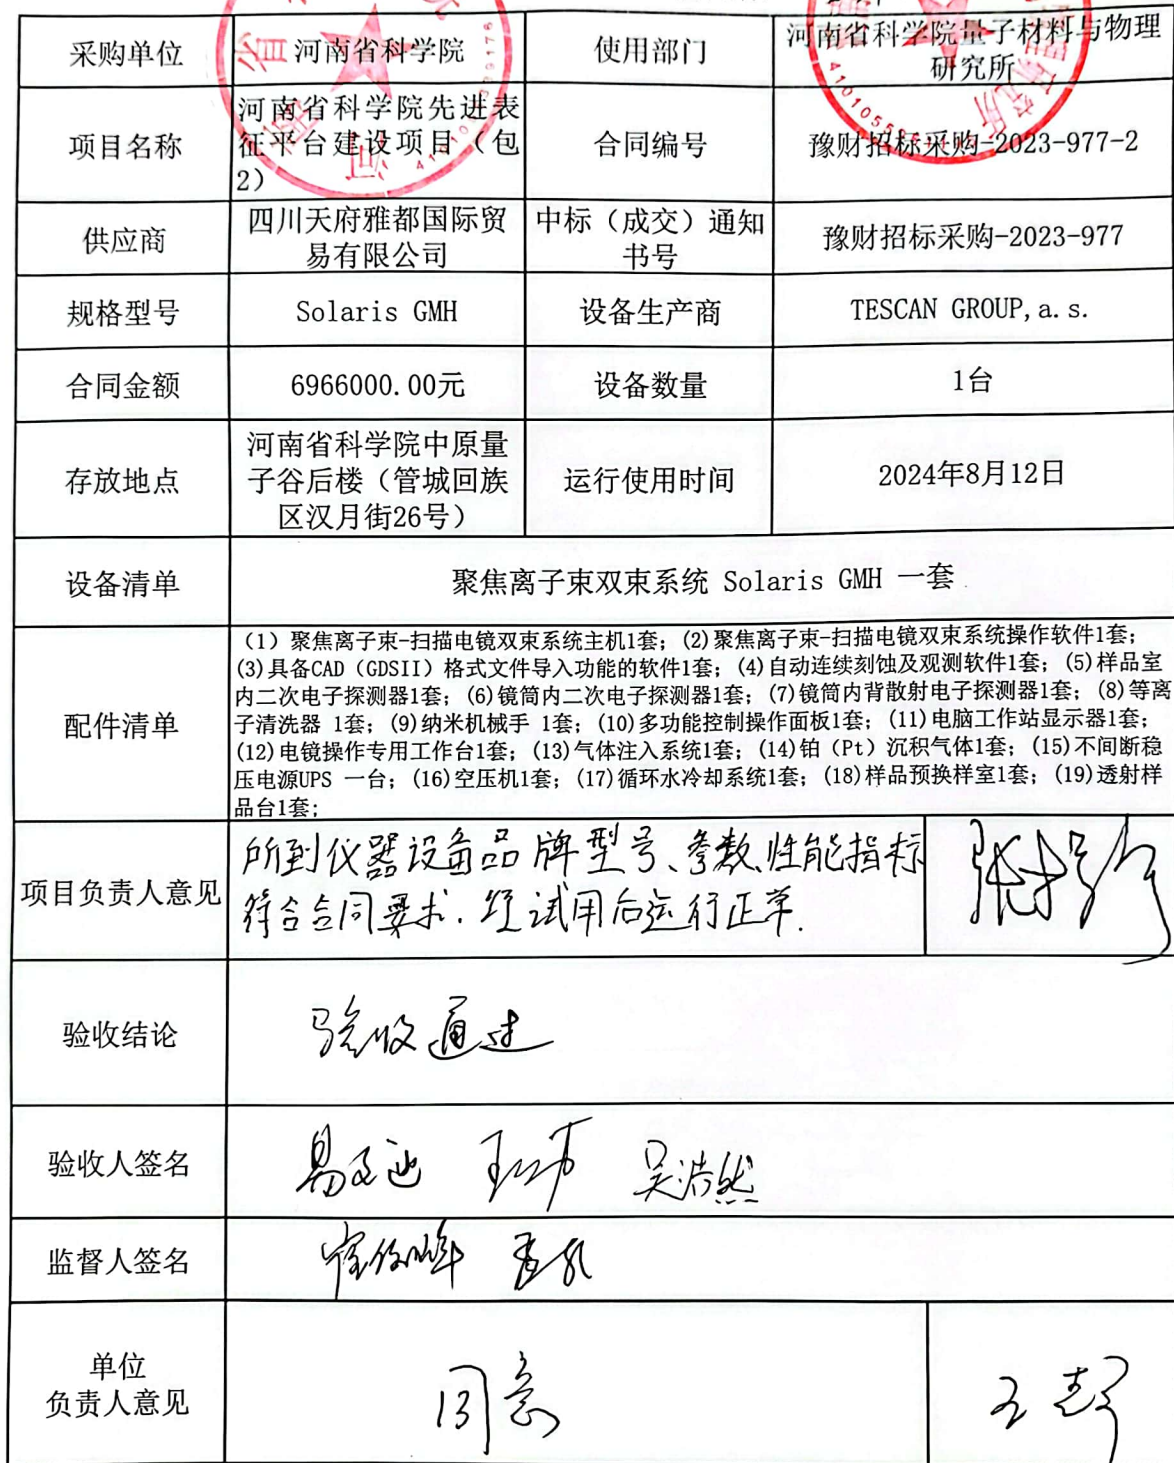 采购单位 河南省科学院 使用部门 河南省科学院量子材料与物理
研究所
项目名称 河南省科学院先进表
征平台建设项目（包
2） 合同编号 豫财招标采购-2023-977-2
供应商 四川天府雅都国际贸
易有限公司 中标（成交）通知
书号 豫财招标采购-2023-977
规格型号 Solaris GMH 设备生产商 TESCAN GROUP,a.s.
合同金额 6966000.00元 设备数量 1台
存放地点 河南省科学院中原量
子谷后楼（管城回族
区汉月街26号） 运行使用时间 2024年8月12日
设备清单 聚焦离子束双束系统 Solaris GMH 一套
配件清单
（1）聚焦离子束-扫描电镜双束系统主机1套；(2)聚焦离子束-扫描电镜双束系统操作软件1套；
(3)具备CAD（GDSII）格式文件导入功能的软件1套；(4)自动连续刻蚀及观测软件1套；(5)样品室
内二次电子探测器1套；(6)镜筒内二次电子探测器1套；(7)镜筒内背散射电子探测器1套；(8)等离
子清洗器 1套；(9)纳米机械手 1套；(10)多功能控制操作面板1套；(11)电脑工作站显示器1套；
(12)电镜操作专用工作台1套；(13)气体注入系统1套；(14)铂（Pt）沉积气体1套；(15)不间断稳
压电源UPS 一台；(16)空压机1套；(17)循环水冷却系统1套；(18)样品预换样室1套；(19)透射样
品台1套；
项目负责人意见 所到仪器设备品牌型号、参数、性能指标
符合合同要求.经试用后运行正常.
验收结论 验收通过
验收人签名 吴浩然
监督人签名
单位
负责人意见 同意